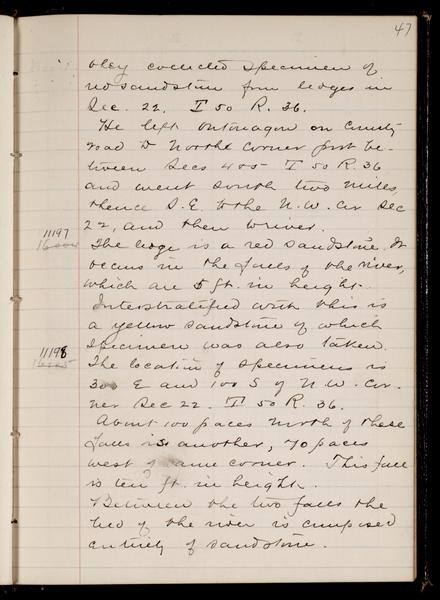 47
Oley collected specimen of
red sandstone from ledges in
Sec. 22. T 50 R. 36.
He left Ontonagon on County
road to North corner post be-
tween Secs 4 & 5 T 50 R. 36
and went south two miles,
thence S. E. to the N. W. Cor Sec
22, and then to river.
11197
The ledge is a red sandstone. It
occurs in the falls of the river,
which are 5 ft. in height.
Interstratified with this is
a yellow sandstone of which
specimen was also taken.
11198
The location of specimens is
300 E and 100 S of N. W. Cor-
ner Sec 22. T 50 R. 36.
About 100 paces north of these
falls is another, 70 paces
west of same corner. This fall
is ten ft. in height.
Between the two falls the
bed of the river is composed
entirely of sandstone.